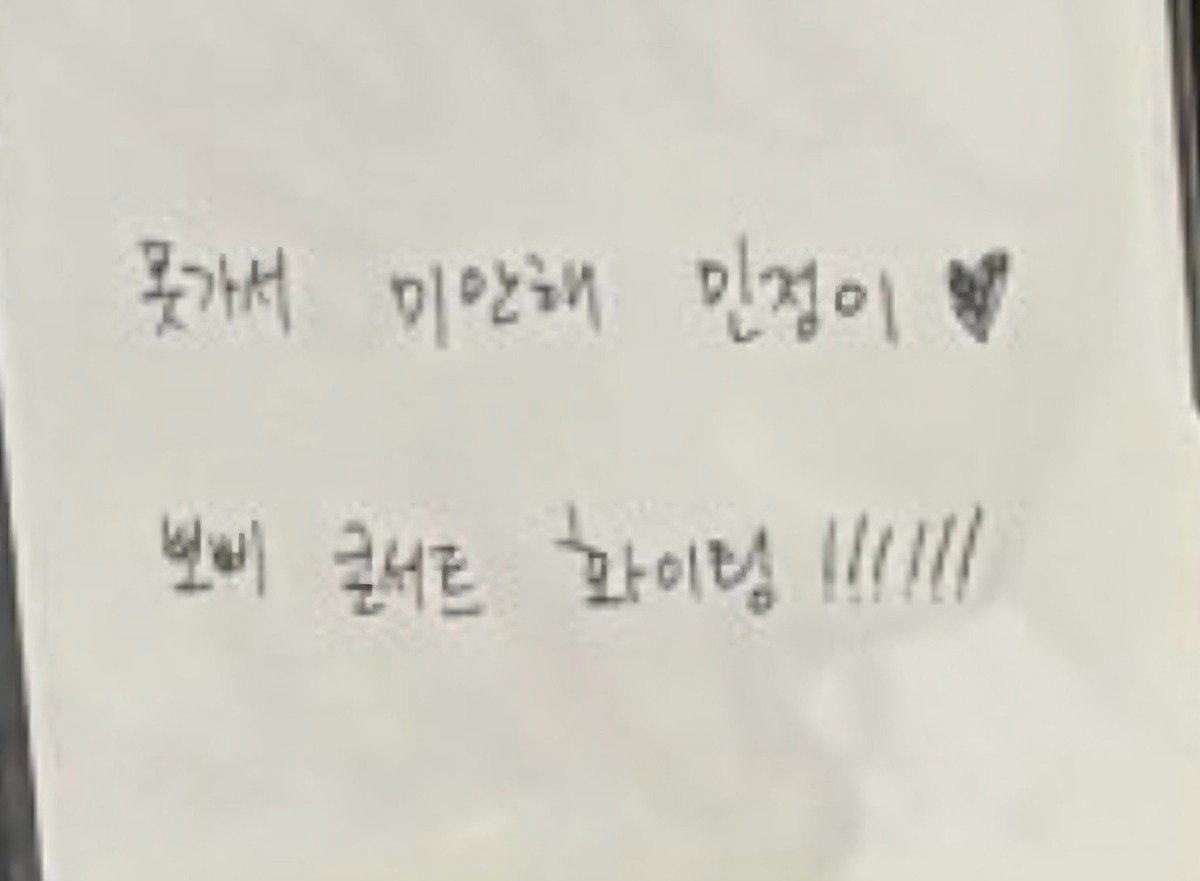 못가서 미안해 민정이 ♥
뽀삐 콘서트 화이팅 !!!!!!